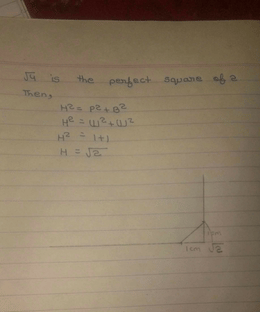 √4 is the perfect square of 2
Then,
H² = P² + B²
H² = (1)² + (1)²
H² = 1+1
H = √2
1 cm √2